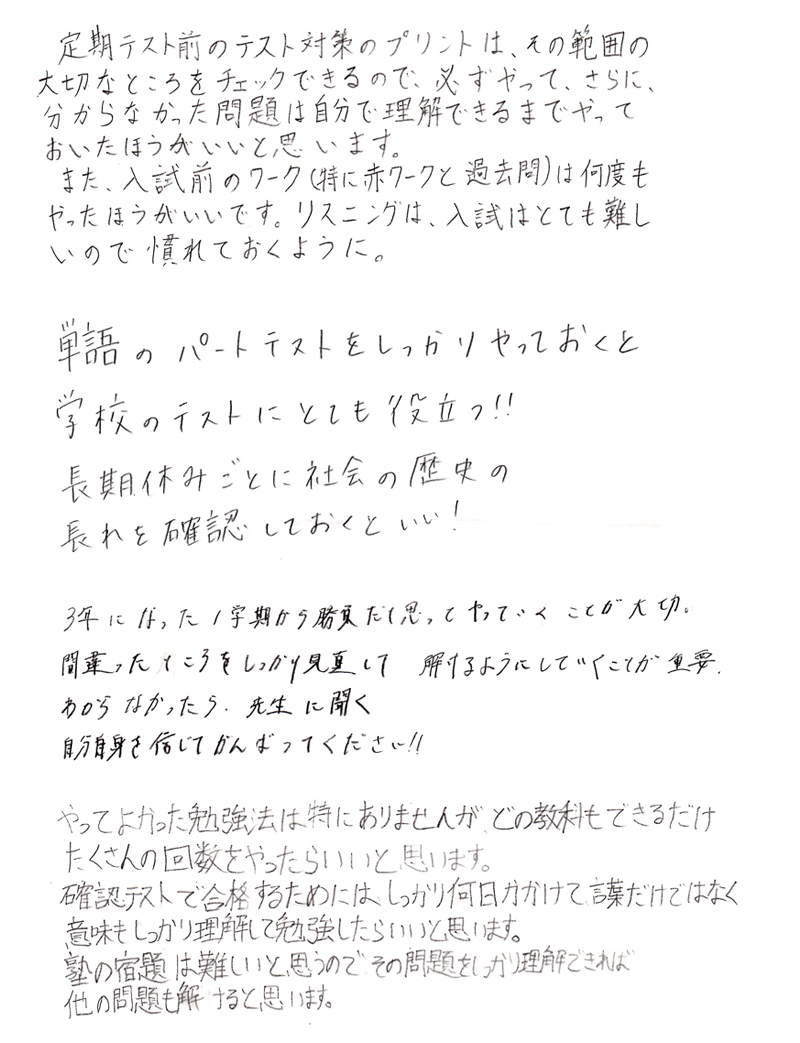 定期テスト前のテスト対策のプリントは、その範囲の
大切なところをチェックできるので、必ずやって、さらに、
分からなかった問題は自分で理解できるまでやって
おいたほうがいいと思います。
また、入試前のワーク(特に赤ワークと過去問)は何度も
やったほうがいいです。リスニングは、入試はとても難し
いので慣れておくように。
単語のパートテストをしっかりやっておくと
学校のテストにとても役立つ!!
長期休みごとに社会の歴史の
長れを確認しておくといい!
3年になった1学期から勝負だと思ってやっていくことが大切。
間違ったところをしっかり見直して 解けるようにしていくことが重要.
わからなかったら、先生に聞く
自分自身を信じてがんばってください!!
やってよかった勉強法は特にありませんが、どの教科もできるだけ
たくさんの回数をやったらいいと思います。
確認テストで合格するためには、しっかり何日かかけて、言葉だけではなく
意味もしっかり理解して勉強したらいいと思います。
塾の宿題は難しいと思うのでその問題をしっかり理解できれば
他の問題も解けると思います。